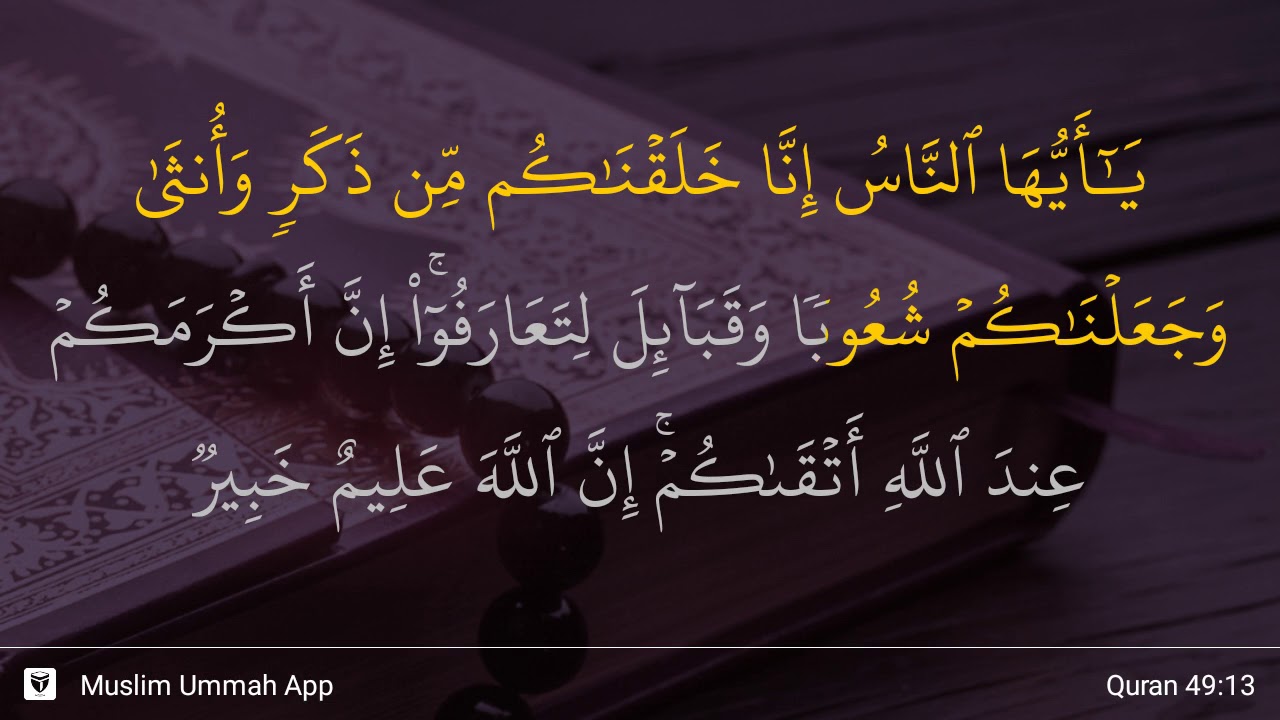 يَـٰٓأَيُّهَا ٱلنَّاسُ إِنَّا خَلَقۡنَـٰكُم مِّن ذَكَرٍۢ وَأُنثَىٰ
وَجَعَلۡنَـٰكُمۡ شُعُوبًۭا وَقَبَآئِلَ لِتَعَارَفُوٓا۟ۚ إِنَّ أَكۡرَمَكُمۡ
عِندَ ٱللَّهِ أَتۡقَىٰكُمۡۚ إِنَّ ٱللَّهَ عَلِيمٌ خَبِيرٌۭ
Muslim Ummah App
Quran 49:13